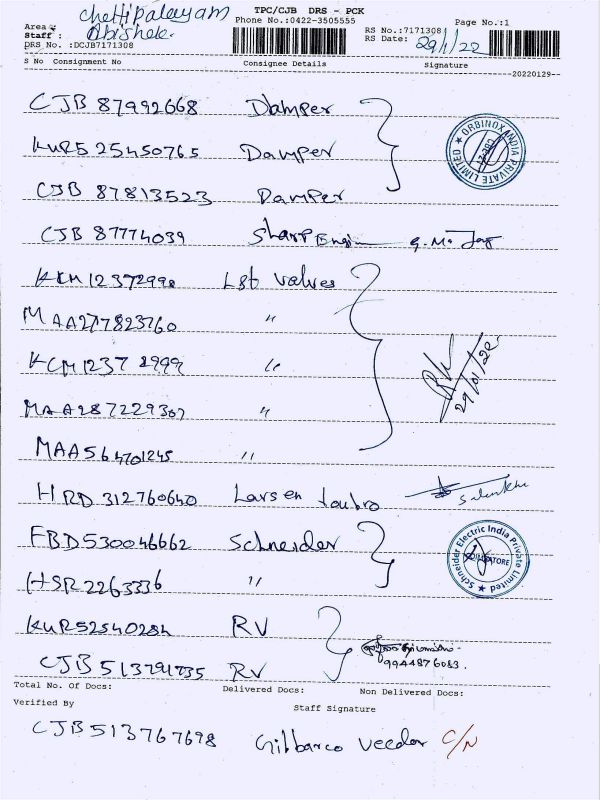 TPC/CJB DRS - PCK
Phone No.:0422-3505555
Page No.:1
Area : Chettipalayam
Staff : Abishek.
DRS No. :DCJB7171308
RS No.:7171308
RS Date: 29/1/22
S No Consignment No Consignee Details Signature
20220129
CJB 87992668 Damper
KUR525450765 Damper
CJB 87813523 Damper
ORBINOX INDIA PRIVATE LIMITED
CJB 87774039 Sharp Engin
KCM12372998 L&t valves
MAA277823760 "
KCM12372999 "
MAA287229307 "
29/01/22
MAA564701245 "
HRD 312760640 Larsen toubro
FBD530046662 Schneider
Schneider Electric India Private Limited
COIMBATORE
HSR2263336 "
KUR52540284 RV
9944876083.
CJB513791735 RV
Total No. Of Docs: Delivered Docs: Non Delivered Docs:
Verified By Staff Signature
CJB513767698 Gilbarco Veeder C/N